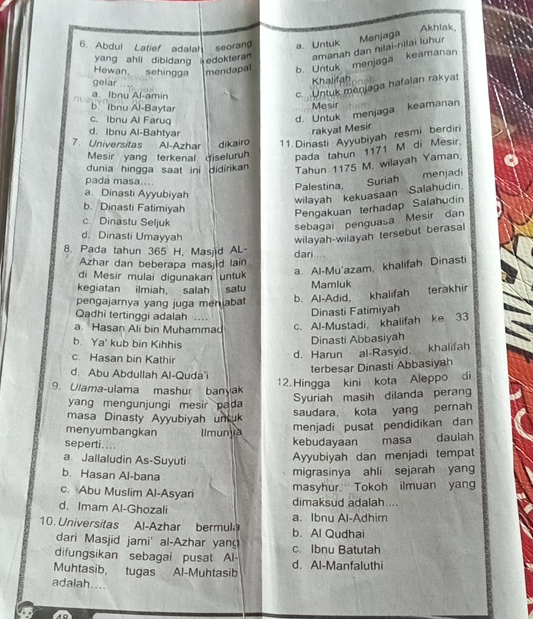 6. Abdul Latief adalah seorang
yang ahli dibidang kedokteran
Hewan, sehingga mendapat
gelar ....
a. Ibnu Al-amin
b. Ibnu Al-Baytar
c. Ibnu Al Faruq
d. Ibnu Al-Bahtyar
7. Universitas Al-Azhar dikairo
Mesir yang terkenal diseluruh
dunia hingga saat ini didirikan
pada masa....
a. Dinasti Ayyubiyah
b. Dinasti Fatimiyah
c. Dinastu Seljuk
d. Dinasti Umayyah
8. Pada tahun 365 H, Masjid AL-
Azhar dan beberapa masjid lain
di Mesir mulai digunakan untuk
kegiatan ilmiah, salah satu
pengajarnya yang juga menjabat
Qadhi tertinggi adalah ....
a. Hasan Ali bin Muhammad
b. Ya' kub bin Kihhis
c. Hasan bin Kathir
d. Abu Abdullah Al-Quda'i
9. Ulama-ulama mashur banyak
yang mengunjungi mesir pada
masa Dinasty Ayyubiyah untuk
menyumbangkan Ilmunya
seperti....
a. Jallaludin As-Suyuti
b. Hasan Al-bana
c. Abu Muslim Al-Asyari
d. Imam Al-Ghozali
10. Universitas Al-Azhar bermula
dari Masjid jami' al-Azhar yang
difungsikan sebagai pusat Al-
Muhtasib, tugas Al-Muhtasib
adalah....
a. Untuk Menjaga Akhlak,
amanah dan nilai-nilai luhur
b. Untuk menjaga keamanan
Khalifah
c. Untuk menjaga hafalan rakyat
Mesir
d. Untuk menjaga keamanan
rakyat Mesir
11. Dinasti Ayyubiyah resmi berdiri
pada tahun 1171 M di Mesir.
Tahun 1175 M, wilayah Yaman,
Palestina, Suriah menjadi
wilayah kekuasaan Salahudin.
Pengakuan terhadap Salahudin
sebagai penguasa Mesir dan
wilayah-wilayah tersebut berasal
dari....
a. Al-Mu'azam, khalifah Dinasti
Mamluk
b. Al-Adid, khalifah terakhir
Dinasti Fatimiyah
c. Al-Mustadi, khalifah ke 33
Dinasti Abbasiyah
d. Harun al-Rasyid, khalifah
terbesar Dinasti Abbasiyah
12. Hingga kini kota Aleppo di
Syuriah masih dilanda perang
saudara, kota yang pernah
menjadi pusat pendidikan dan
kebudayaan masa daulah
Ayyubiyah dan menjadi tempat
migrasinya ahli sejarah yang
masyhur. Tokoh ilmuan yang
dimaksud adalah....
a. Ibnu Al-Adhim
b. Al Qudhai
c. Ibnu Batutah
d. Al-Manfaluthi
48